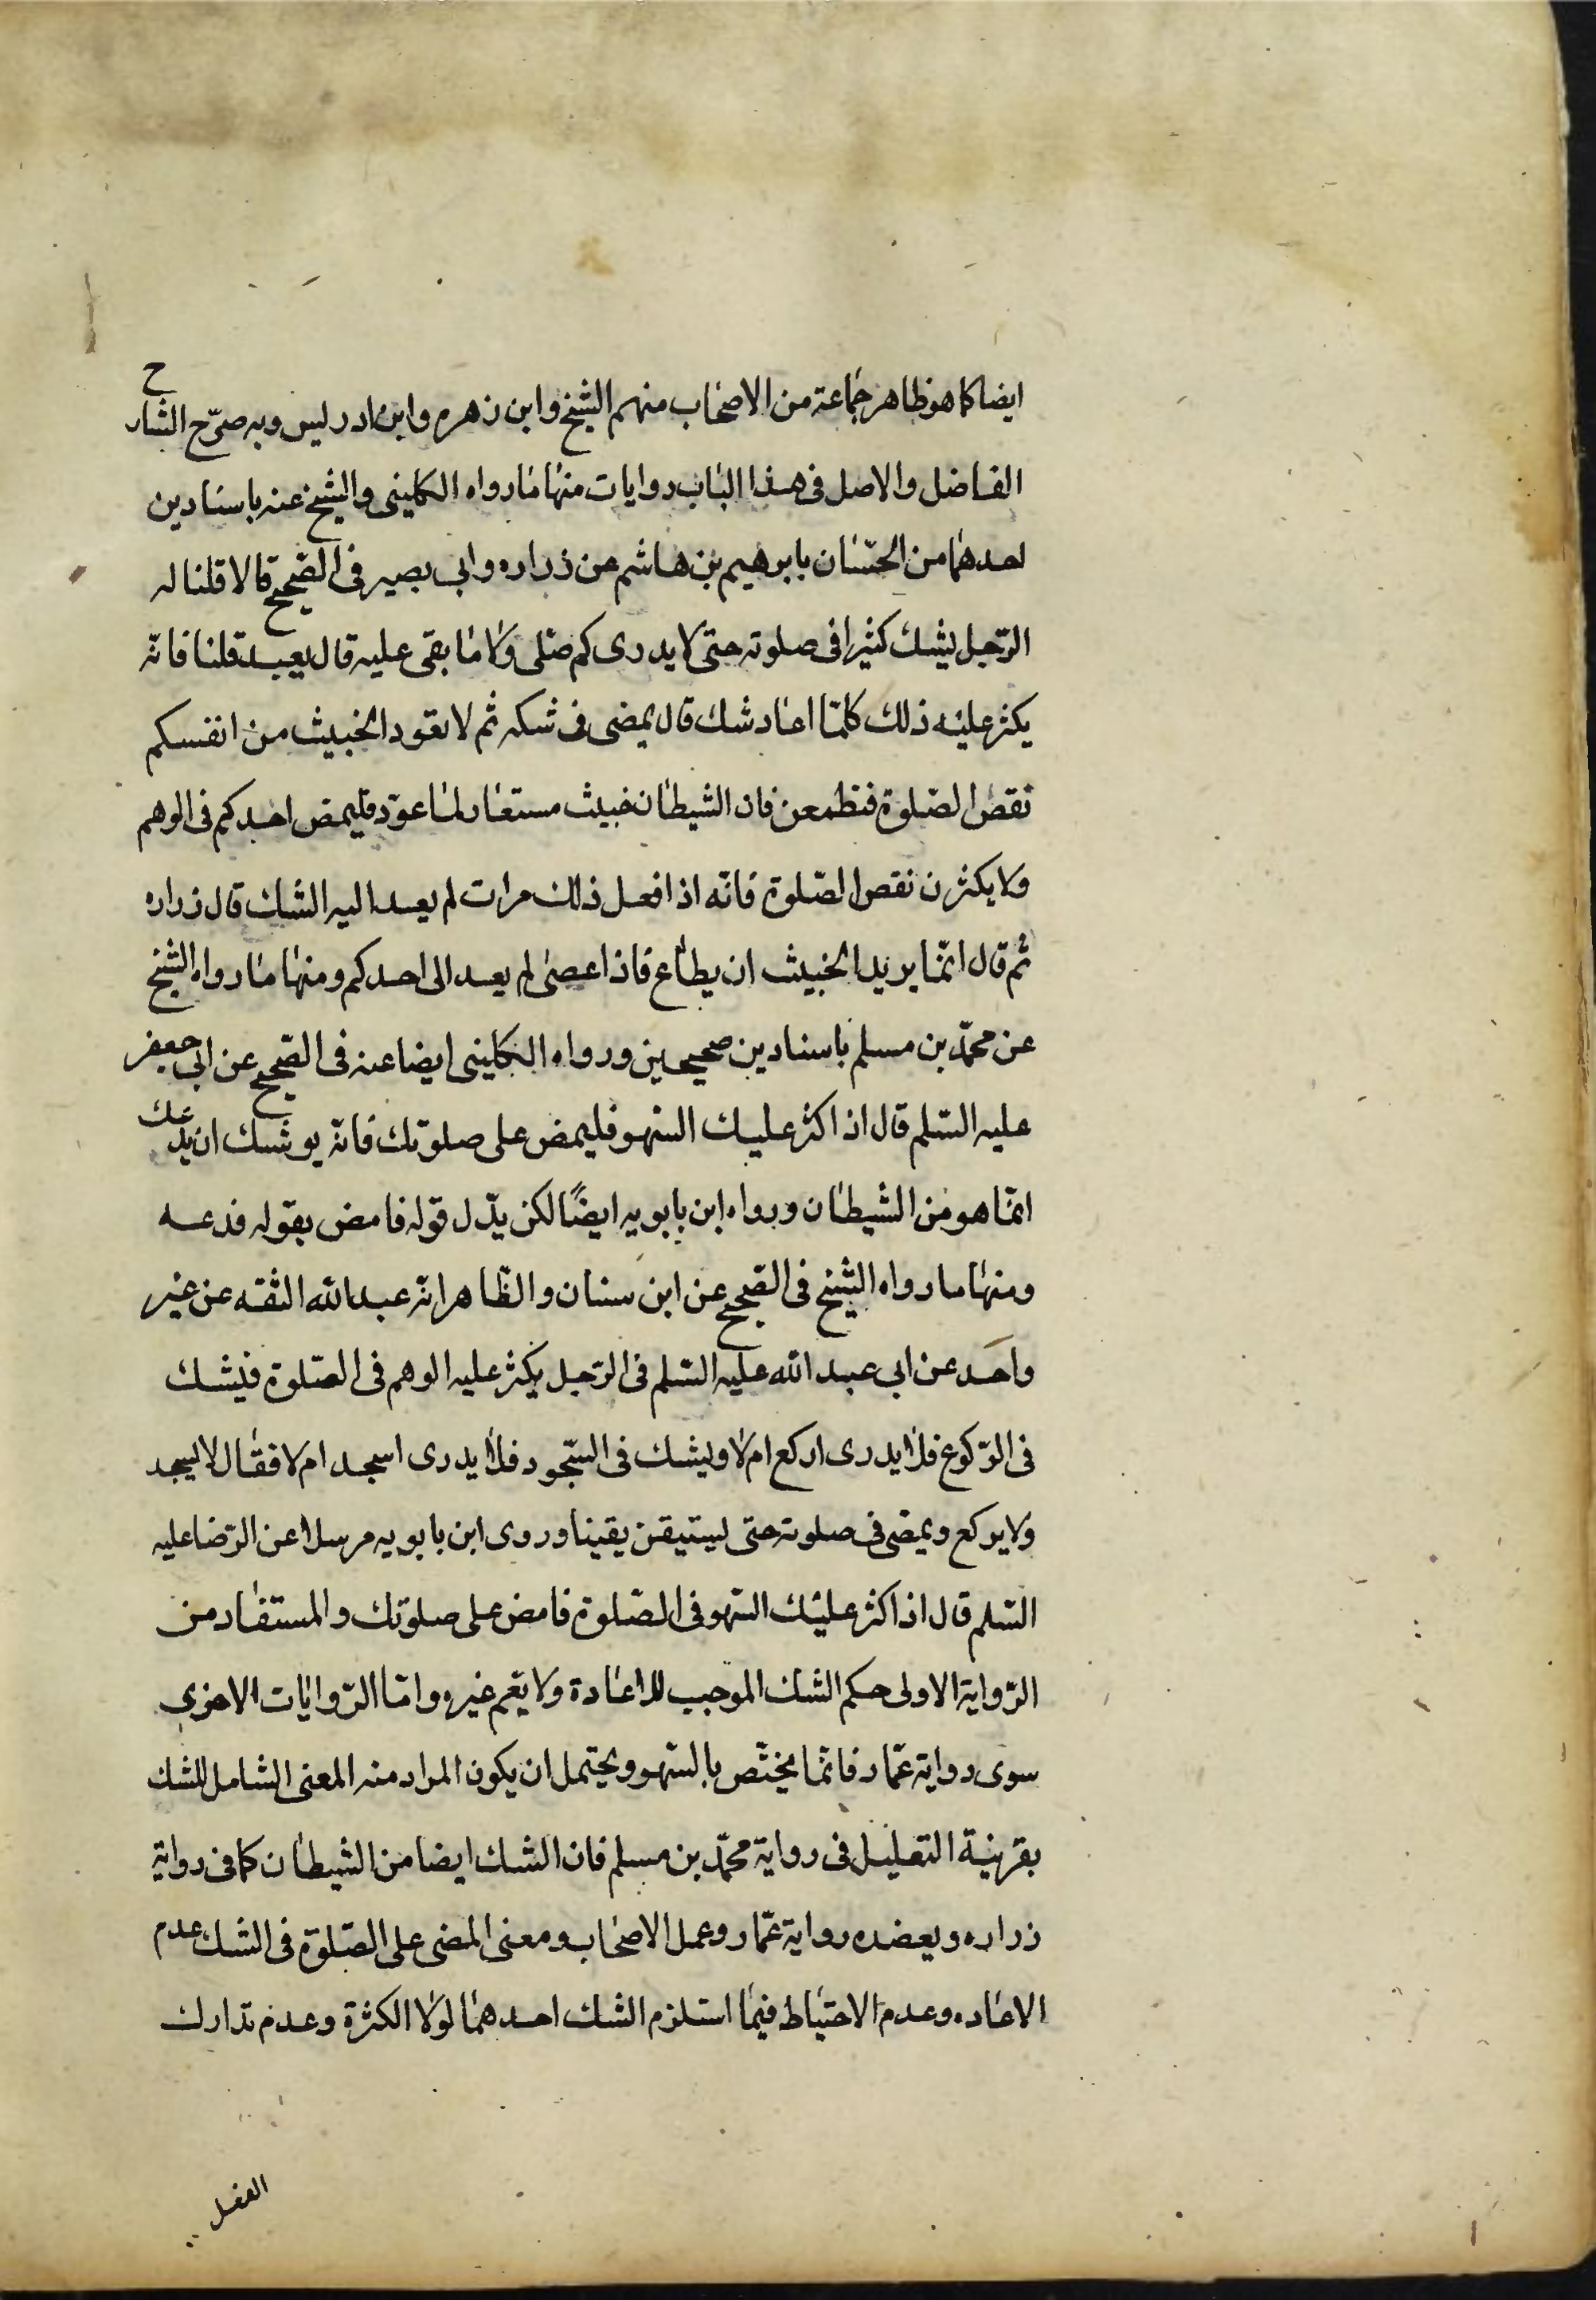 ايضا كما هو ظاهر جماعة من الاصحاب منهم الشيخ وابن زهره وابن ادريس وبه صرّح الشارح
الفاضل والاصل فى هذا الباب روايات منها ما رواه الكلينى والشيخ عنه باسنادين
احدهما من الحسان بابرهيم بن هاشم عن زراره وابى بصير فى الصّحيح قالا قلنا له
الرّجل يشك كثيرا فى صلوته حتى لا يدرى كم صلى ولا ما بقى عليه قال يعيد قلنا فانّه
يكثر عليه ذلك كلمّا اعاد شك قال يمضى فى شكه ثم لا تعود الخبيث من انفسكم
نقض الصّلوة فتطمعن فان الشيطان خبيث مستعار لما عوّد فليمض احدكم فى الوهم
ولا يكثرن نقص الصّلوة فانّه اذا فعل ذلك مرات لم يعد اليه الشك قال زراره
ثم قال انّما يريد الخبيث ان يطاع فاذا عصى لم يعد الى احدكم ومنها ما رواه الشيخ
عن محمّد بن مسلم باسنادين صحيحين ورواه الكلينى ايضا عنه فى الصّحيح عن ابى جعفر
عليه السّلم قال اذا كثر عليك السّهو فليمض على صلوتك فانّه يوشك ان يدعك
انمّا هو من الشيطان ورواه ابن بابويه ايضًا لكن بدّل قوله فامض بقوله فدعه
ومنها ما رواه الشّيخ فى الصّحيح عن ابن سنان والظّاهر انّه عبد الله الثقه عن غير
واحد عن ابى عبد الله عليه السّلم فى الرّجل يكثر عليه الوهم فى الصّلوة فيشك
فى الرّكوع فلا يدرى اركع ام لا ويشك فى السّجود فلا يدرى اسجد ام لا فقال لا يسجد
ولا يركع ويمضى فى صلوته حتى يستيقن يقينا وروى ابن بابويه مرسلا عن الرّضا عليه
السّلم قال اذا كثر عليك السّهو فى الصّلوة فامض على صلوتك والمستفاد من
الرّواية الاولى حكم الشك الموجب للاعادة ولا يعّم غيره وامّا الرّوايات الاخرى
سوى رواية عمّار فانمّا يختّص بالسّهو ويحتمل ان يكون المراد منه المعنى الشامل للشك
بقرينة التعليل فى رواية محمّد بن مسلم فان الشك ايضا من الشيطان كما فى رواية
زراره ويعضده رواية عمّار وعمل الاصحاب ومعنى المضى على الصّلوة فى الشك عدم
الاعاده وعدم الاحتياط فيما استلزم الشك احدهما لولا الكثرة وعدم تدارك
الفعل